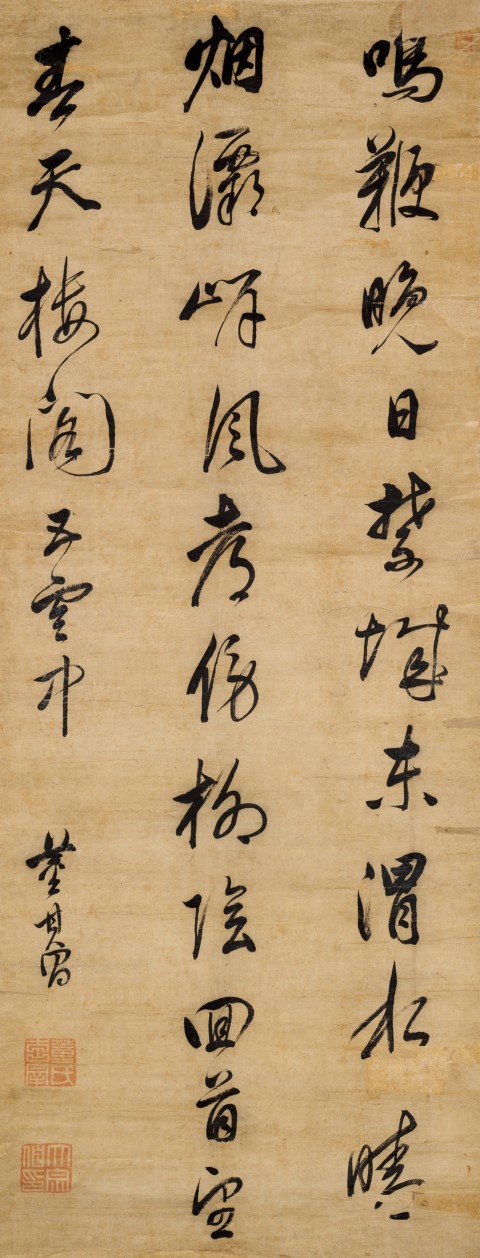 鳴鞭晚日禁城東渭水晴
烟灞岸風都傍柳陰回首望
春天樓閣五雲中
董其昌
董氏玄宰